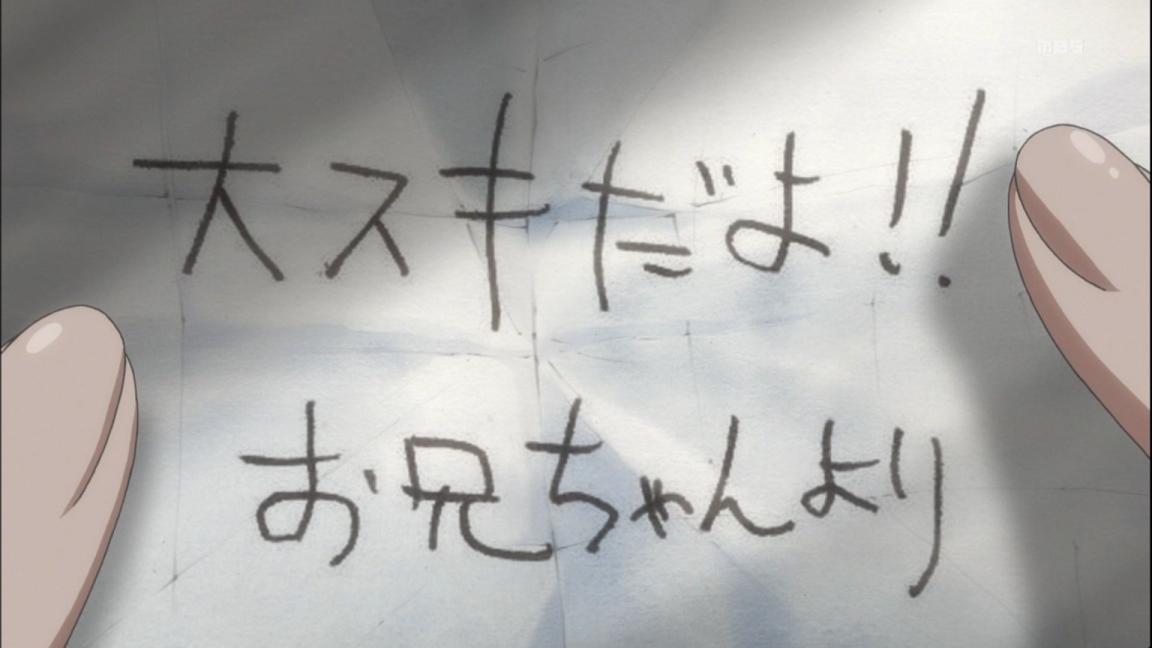 MBS
大スキだよ!!
お兄ちゃんより